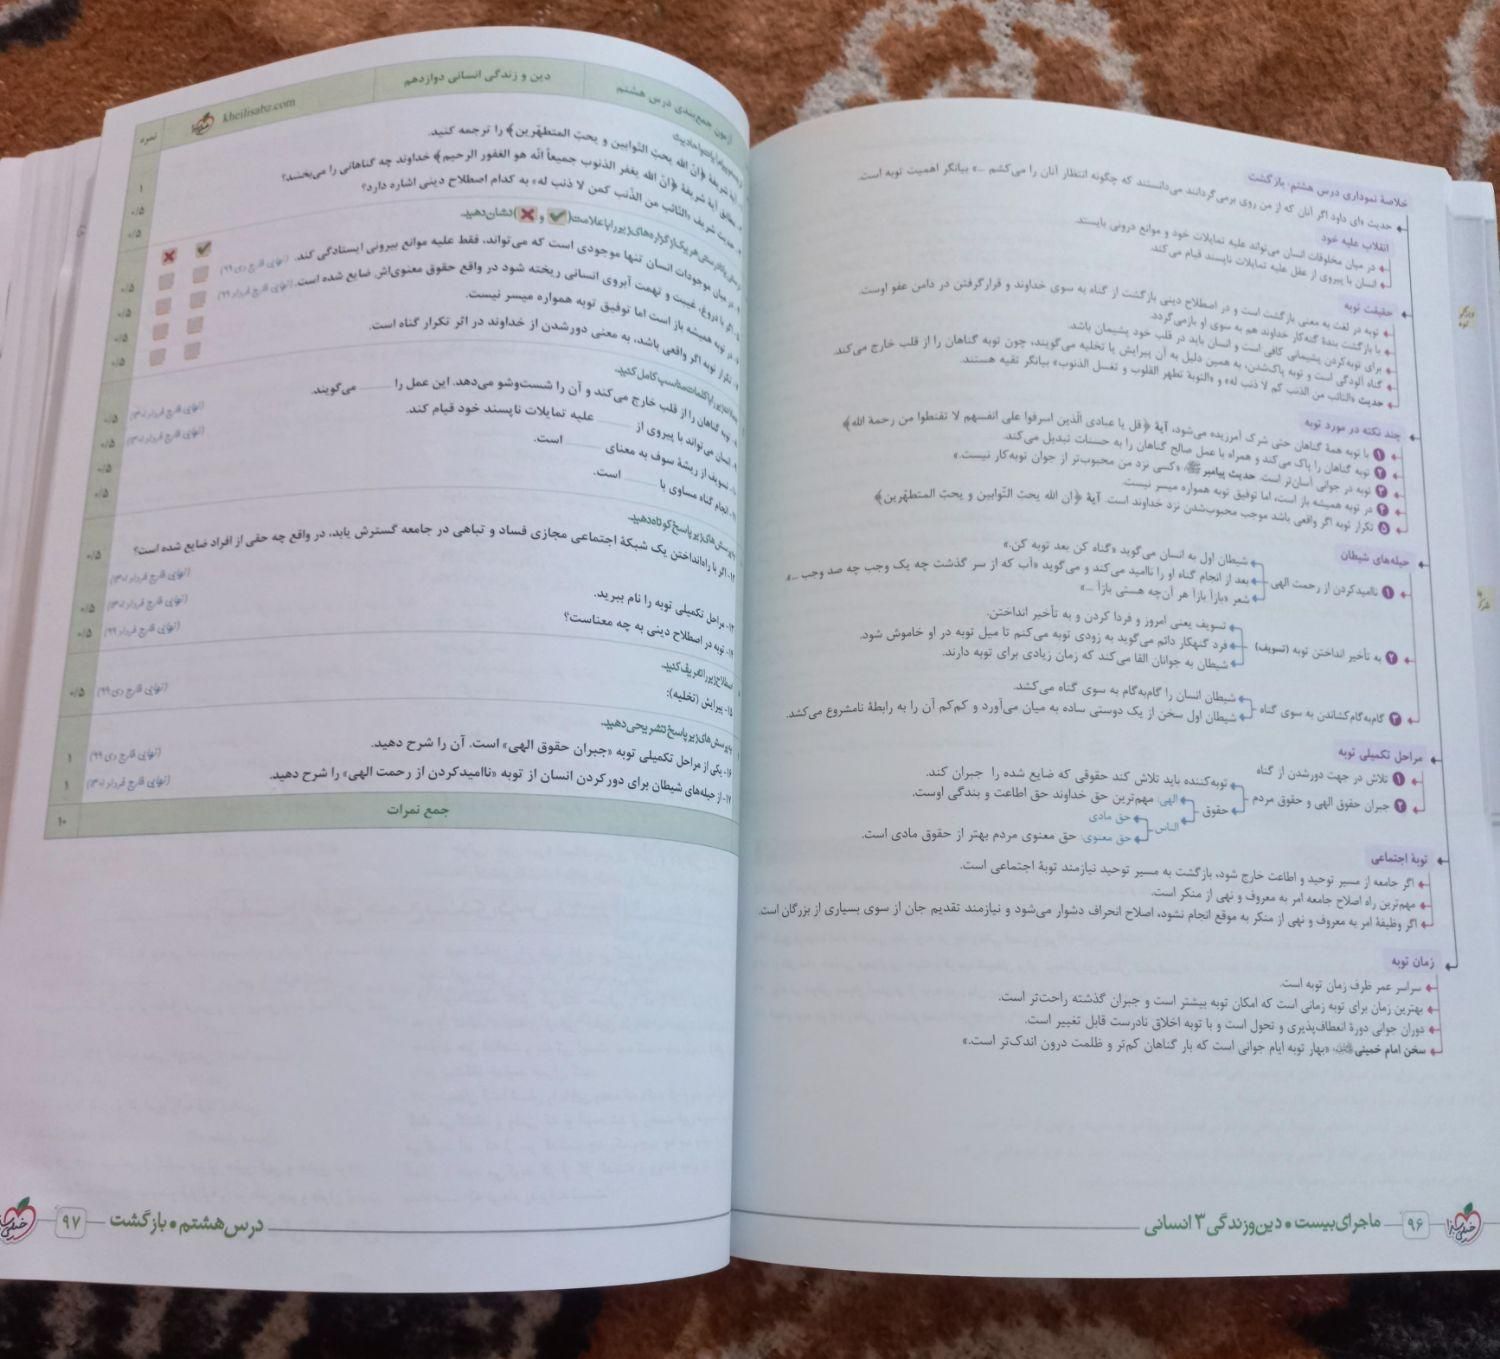 خلاصهٔ نموداری درس هشتم: بازگشت
حدیث «ای داود اگر آنان که از من روی برمی‌گردانند می‌دانستند که چگونه انتظار آنان را می‌کشم ...» بیانگر اهمیت توبه است.
انقلاب علیه خود
در میان مخلوقات انسان می‌تواند علیه تمایلات خود و موانع درونی بایستد.
انسان با پیروی از عقل علیه تمایلات ناپسند قیام می‌کند.
حقیقت توبه
توبه در لغت به معنی بازگشت است و در اصطلاح دینی بازگشت از گناه به سوی خداوند و قرارگرفتن در دامن عفو اوست.
با بازگشت بندهٔ گنه‌کار خداوند هم به سوی او بازمی‌گردد.
برای توبه‌کردن پشیمانی کافی است و انسان باید در قلب خود پشیمان باشد.
گناه آلودگی است و توبه پاک‌شدن، به همین دلیل به آن پیرایش یا تخلیه می‌گویند، چون توبه گناهان را از قلب خارج می‌کند.
حدیث «التائب من الذنب کم لا ذنب له» و «التوبة تطهر القلوب و تغسل الذنوب» بیانگر تقیه هستند.
چند نکته در مورد توبه
۱ با توبه همهٔ گناهان حتی شرک آمرزیده می‌شود، آیهٔ ﴿قل یا عبادی الّذین اسرفوا علی انفسهم لا تقنطوا من رحمة الله﴾
۲ توبه گناهان را پاک می‌کند و همراه با عمل صالح گناهان را به حسنات تبدیل می‌کند.
۳ توبه در جوانی آسان‌تر است. حدیث پیامبر ﷺ: «کسی نزد من محبوب‌تر از جوان توبه‌کار نیست.»
۴ در توبه همیشه باز است، اما توفیق توبه همواره میسر نیست.
۵ تکرار توبه اگر واقعی باشد موجب محبوب‌شدن نزد خداوند است. آیهٔ ﴿ان الله یحبّ التّوابین و یحبّ المتطهّرین﴾
حیله‌های شیطان
۱ ناامیدکردن از رحمت الهی
شیطان اول به انسان می‌گوید «گناه کن بعد توبه کن.»
بعد از انجام گناه او را ناامید می‌کند و می‌گوید «آب که از سر گذشت چه یک وجب چه صد وجب ...»
شعر «بازآ بازآ هر آن‌چه هستی بازآ ...»
۲ به تأخیر انداختن توبه (تسویف)
تسویف یعنی امروز و فردا کردن و به تأخیر انداختن.
فرد گنهکار دائم می‌گوید به زودی توبه می‌کنم تا میل توبه در او خاموش شود.
شیطان به جوانان القا می‌کند که زمان زیادی برای توبه دارند.
۳ گام‌به‌گام کشاندن به سوی گناه
شیطان انسان را گام‌به‌گام به سوی گناه می‌کشد.
شیطان اول سخن از یک دوستی ساده به میان می‌آورد و کم‌کم آن را به رابطهٔ نامشروع می‌کشد.
مراحل تکمیلی توبه
۱ تلاش در جهت دورشدن از گناه
۲ جبران حقوق الهی و حقوق مردم
توبه‌کننده باید تلاش کند حقوقی که ضایع شده را جبران کند.
حقوق
الهی: مهم‌ترین حق خداوند حق اطاعت و بندگی اوست.
الناس
حق مادی
حق معنوی: حق معنوی مردم بهتر از حقوق مادی است.
توبهٔ اجتماعی
اگر جامعه از مسیر توحید و اطاعت خارج شود، بازگشت به مسیر توحید نیازمند توبهٔ اجتماعی است.
مهم‌ترین راه اصلاح جامعه امر به معروف و نهی از منکر است.
اگر وظیفهٔ امر به معروف و نهی از منکر به موقع انجام نشود، اصلاح انحراف دشوار می‌شود و نیازمند تقدیم جان از سوی بسیاری از بزرگان است.
زمان توبه
سراسر عمر ظرف زمان توبه است.
بهترین زمان برای توبه زمانی است که امکان توبه بیشتر است و جبران گذشته راحت‌تر است.
دوران جوانی دورهٔ انعطاف‌پذیری و تحول است و با توبه اخلاق نادرست قابل تغییر است.
سخن امام خمینی: «بهار توبه ایام جوانی است که بار گناهان کم‌تر و ظلمت درون اندک‌تر است.»
۹۶ ماجرای بیست • دین و زندگی ۳ انسانی
خیلی سبز
آزمون جمع‌بندی درس هشتم
دین و زندگی انسانی دوازدهم
kheilisabz.com
نمره
آیهٔ شریفهٔ ﴿انّ الله یحبّ التّوابین و یحبّ المتطهّرین﴾ را ترجمه کنید. ۱
مطابق آیهٔ شریفهٔ ﴿انّ الله یغفر الذنوب جمیعاً انّه هو الغفور الرحیم﴾ خداوند چه گناهانی را می‌بخشد؟ ۰/۵
حدیث شریف «التائب من الذّنب کمن لا ذنب له» به کدام اصطلاح دینی اشاره دارد؟ ۰/۵
درستی یا نادرستی هر یک از گزاره‌های زیر را با علامت (✓ و ✗) نشان دهید.
در میان موجودات انسان تنها موجودی است که می‌تواند، فقط علیه موانع بیرونی ایستادگی کند. (نهایی خارج دی ۹۹) ۰/۵
۵- اگر با دروغ، غیبت و تهمت آبروی انسانی ریخته شود در واقع حقوق معنوی‌اش ضایع شده است. (نهایی خارج خرداد ۹۹) ۰/۵
۶- در توبه همیشه باز است اما توفیق توبه همواره میسر نیست. ۰/۵
۷- تکرار توبه اگر واقعی باشد، به معنی دورشدن از خداوند در اثر تکرار گناه است. ۰/۵
جملات زیر را با کلمات مناسب کامل کنید.
۸- توبه گناهان را از قلب خارج می‌کند و آن را شست‌وشو می‌دهد. این عمل را ______ می‌گویند. ۰/۵
۹- انسان می‌تواند با پیروی از ______ علیه تمایلات ناپسند خود قیام کند. ۰/۵
۱۰- تسویف از ریشهٔ سوف به معنای ______ است. ۰/۵
۱۱- انجام گناه مساوی با ______ است. ۰/۵
به پرسش‌های زیر پاسخ کوتاه دهید.
۱۲- اگر با راه‌انداختن یک شبکهٔ اجتماعی مجازی فساد و تباهی در جامعه گسترش یابد، در واقع چه حقی از افراد ضایع شده است؟ ۰/۵
۱۳- مراحل تکمیلی توبه را نام ببرید. ۰/۵
۱۴- توبه در اصطلاح دینی به چه معناست؟ (نهایی خارج خرداد ۹۹) ۰/۵
اصطلاح زیر را تعریف کنید.
۱۵- پیرایش (تخلیه): (نهایی خارج دی ۹۹) ۰/۵
به پرسش‌های زیر پاسخ تشریحی دهید.
۱۶- یکی از مراحل تکمیلی توبه «جبران حقوق الهی» است. آن را شرح دهید. (نهایی خارج دی ۹۹) ۱
۱۷- از حیله‌های شیطان برای دور کردن انسان از توبه «ناامیدکردن از رحمت الهی» را شرح دهید. ۱
جمع نمرات ۱۰
درس هشتم • بازگشت ۹۷
خیلی سبز